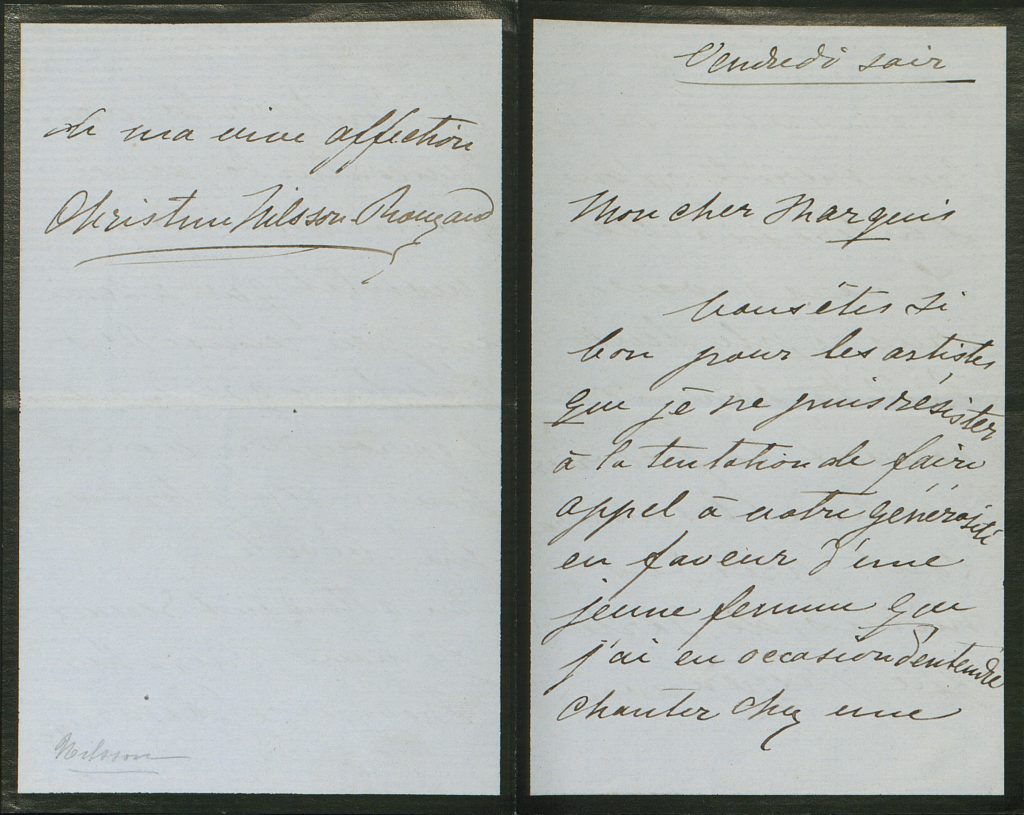 Vendredi soir
Mon cher Marquis
Vous êtes si
bon pour les artistes
que je ne puis résister
à la tentation de faire
appel à votre générosité
en faveur d'une
jeune femme que
j'ai eu occasion d'entendre
chanter chez une
de ma vive affection
Christine Nilsson Rouzaud
Nilsson